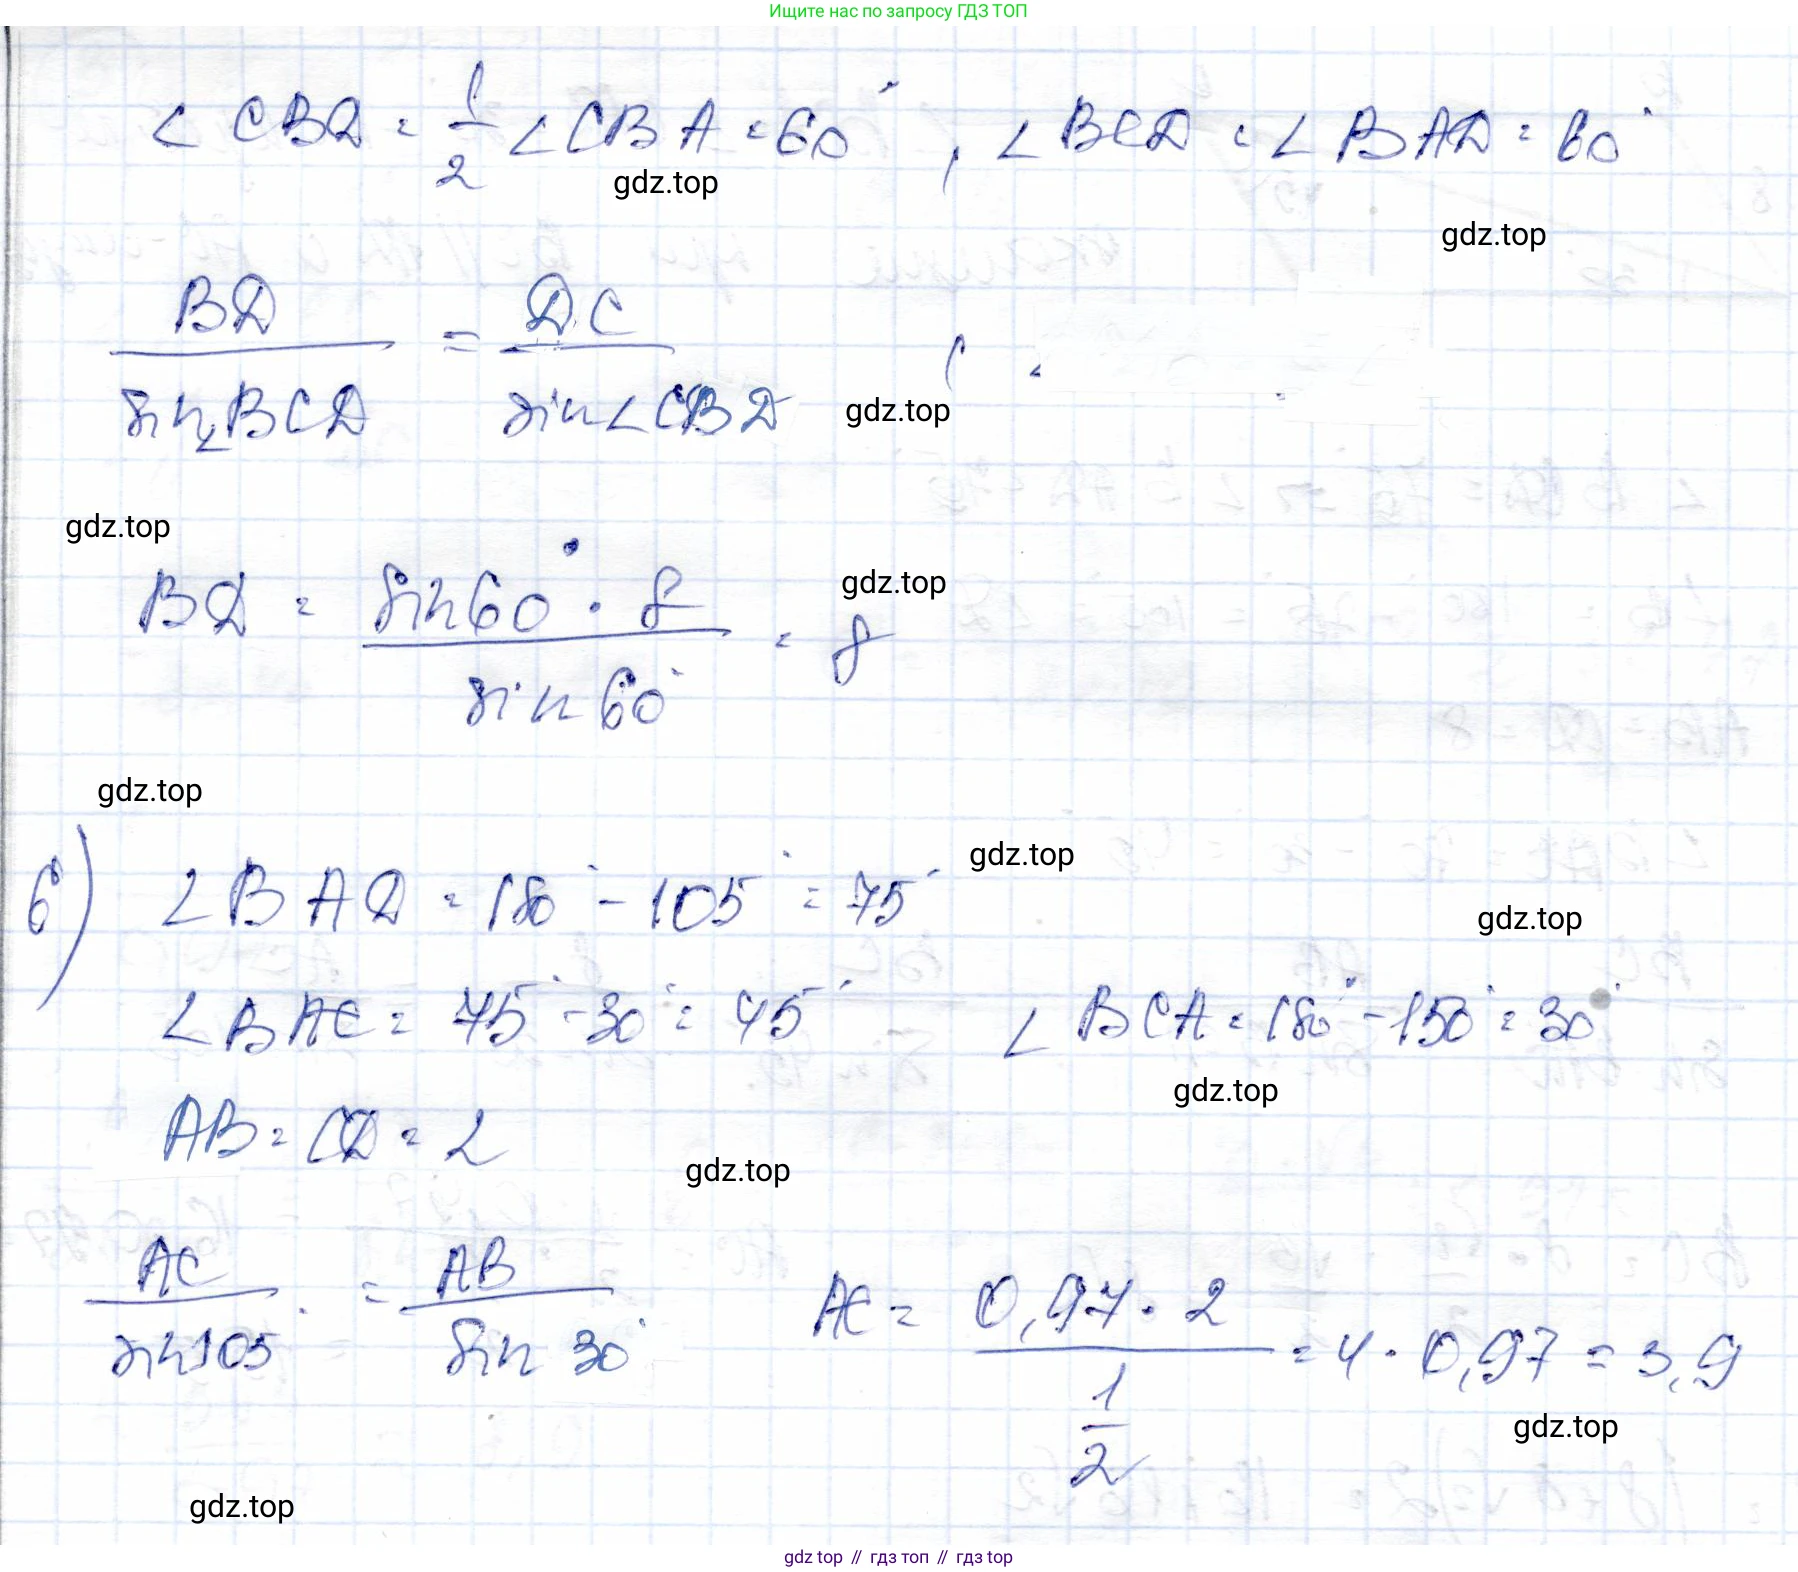 Ищите нас по запросу ГДЗ ТОП
∠ CBD = 1/2 ∠ CBA = 60°, ∠ BCD = ∠ BAD = 60°
gdz.top
gdz.top
BD / sin∠BCD = DC / sin∠CBD
gdz.top
gdz.top
BD = sin60° · 8 / sin60° = 8
gdz.top
gdz.top
б) ∠ BAD = 180° - 105° = 75°
gdz.top
gdz.top
∠ BAC = 75° - 30° = 45° ∠ BCA = 180° - 150° = 30°
gdz.top
AB = CD = 2
gdz.top
AC / sin105 = AB / sin 30° AC = 0,97 · 2 / 1/2 = 4 · 0,97 = 3,9
gdz.top
gdz.top
gdz top // гдз топ // гдз top